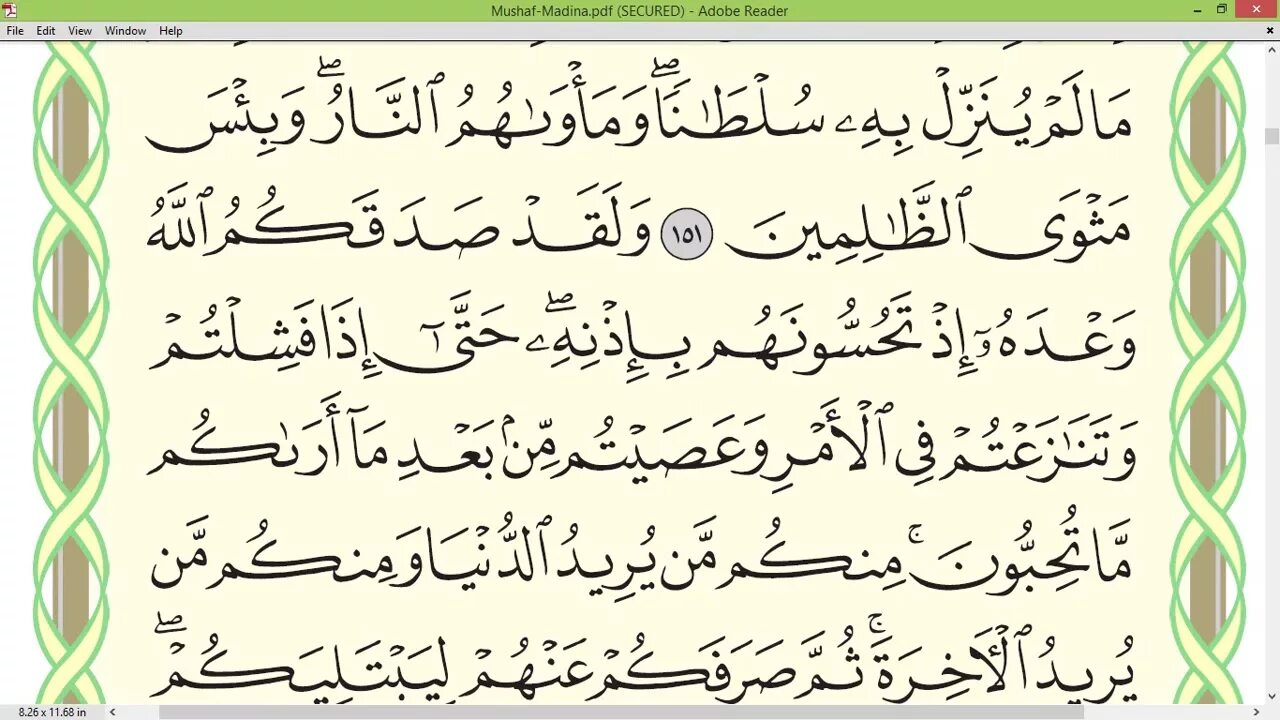 Mushaf-Madina.pdf (SECURED) - Adobe Reader
File Edit View Window Help
مَا لَمْ يُنَزِّلْ بِهِۦ سُلْطَٰنًا ۖ وَمَأْوَىٰهُمُ ٱلنَّارُ ۖ وَبِئْسَ
مَثْوَى ٱلظَّٰلِمِينَ ١٥١ وَلَقَدْ صَدَقَكُمُ ٱللَّهُ
وَعْدَهُۥٓ إِذْ تَحُسُّونَهُم بِإِذْنِهِۦ ۖ حَتَّىٰٓ إِذَا فَشِلْتُمْ
وَتَنَٰزَعْتُمْ فِى ٱلْأَمْرِ وَعَصَيْتُم مِّنۢ بَعْدِ مَآ أَرَىٰكُم
مَّا تُحِبُّونَ ۚ مِنكُم مَّن يُرِيدُ ٱلدُّنْيَا وَمِنكُم مَّن
يُرِيدُ ٱلْـَٔاخِرَةَ ۚ ثُمَّ صَرَفَكُمْ عَنْهُمْ لِيَبْتَلِيَكُمْ ۖ
8.26 x 11.68 in